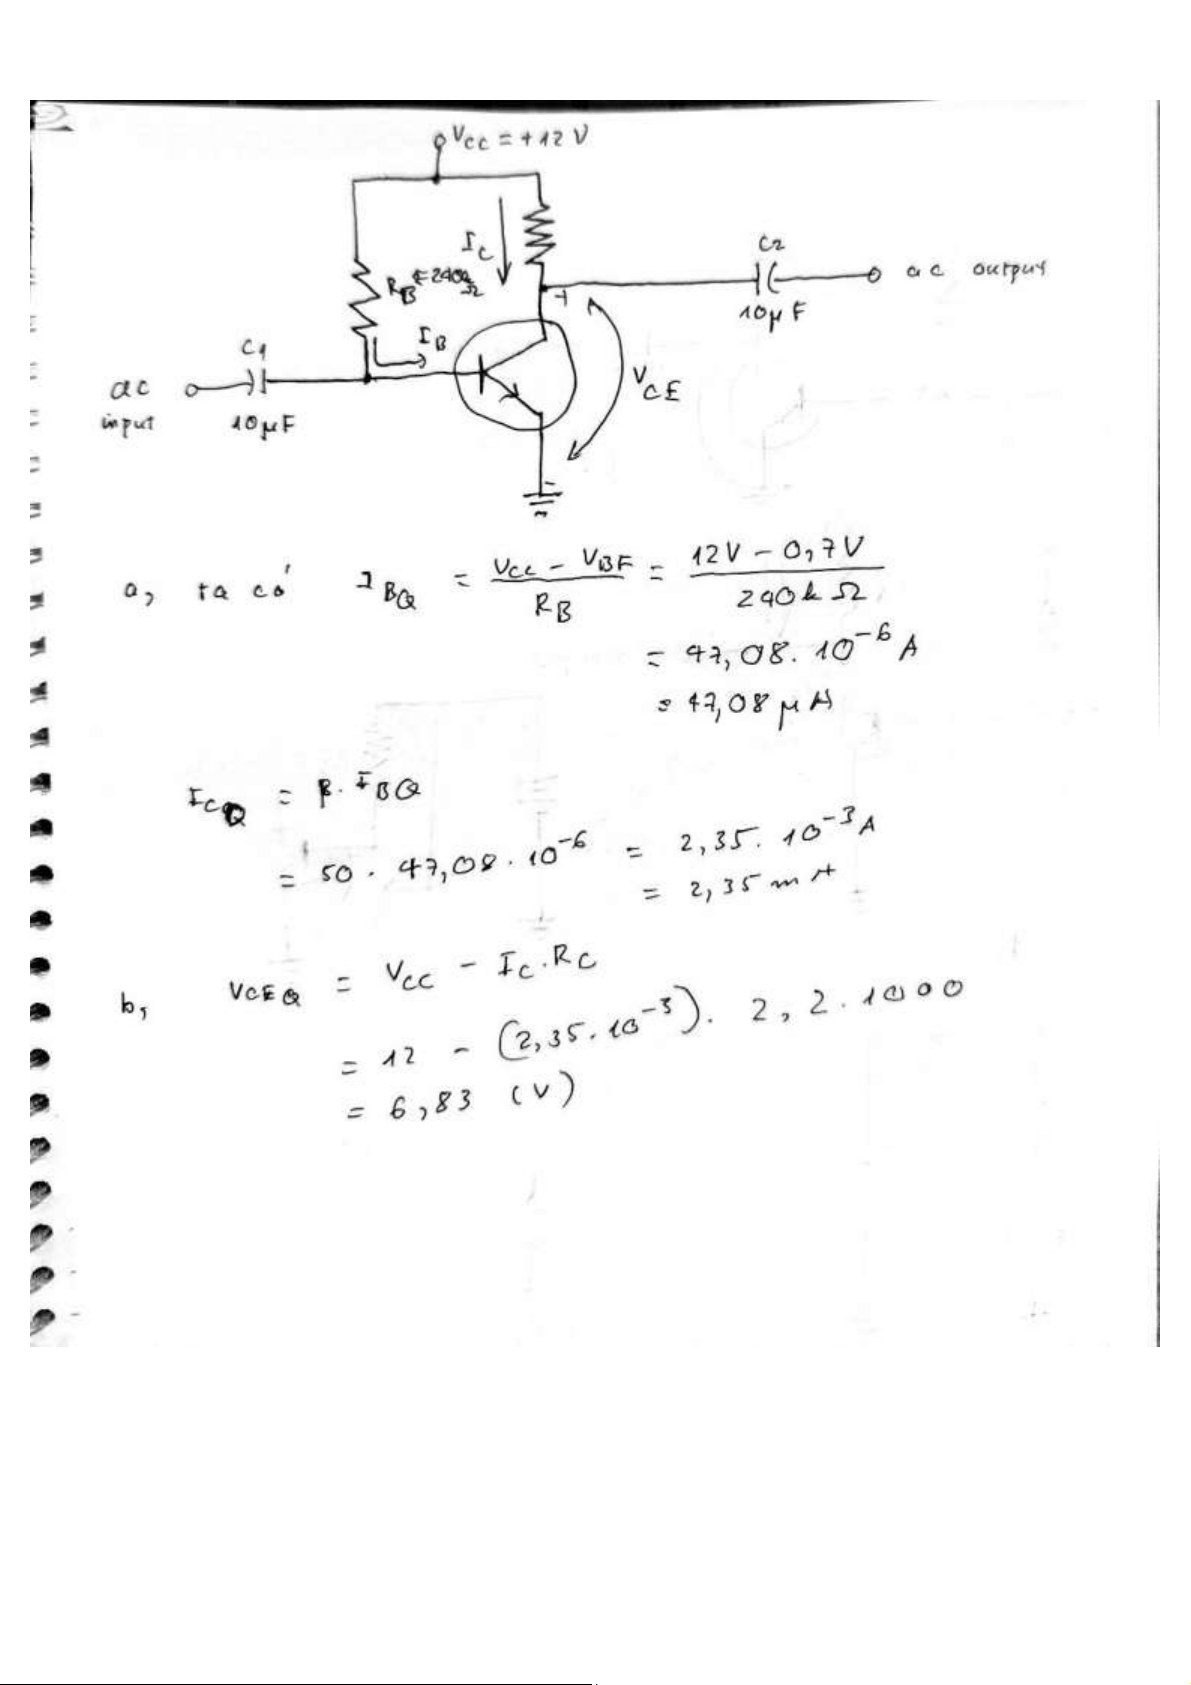 VCC = +12V
IC
RB = 240k Ω
IB
C1
ac input
10μF
C2
10μF
ac output
+
VCE
-
a, ta có IBQ = (VCC - VBE) / RB = (12V - 0,7V) / 240kΩ
= 47,08.10^-6 A
= 47,08 μA
ICQ = β.IBQ
= 50.47,08.10^-6 = 2,35.10^-3 A
= 2,35 mA
b, VCEQ = VCC - IC.RC
= 12 - (2,35.10^-3). 2,2.1000
= 6,83 (V)